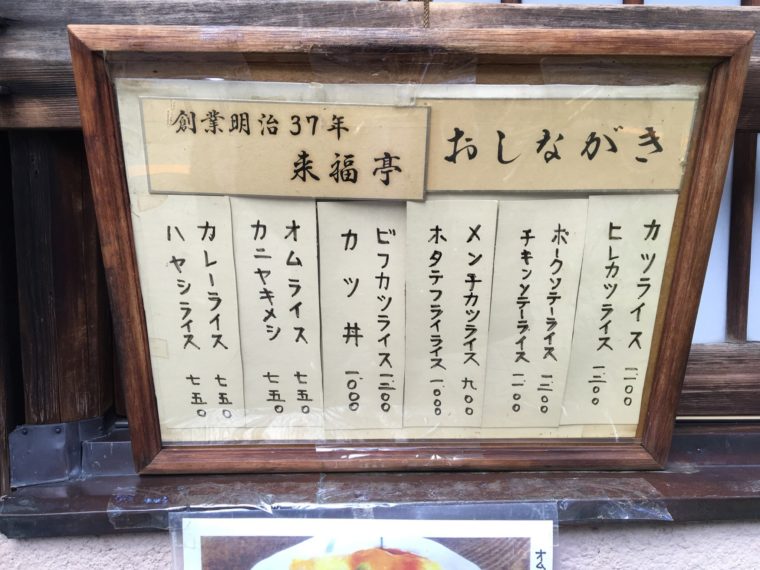 創業明治37年
来福亭
おしながき
カツライス
ヒレカツライス
ポークソテーライス
チキンソテーライス
メンチカツライス 九〇〇
ホタテフライライス 一、〇〇〇
ビフカツライス
カツ丼 一、〇〇〇
オムライス 七五〇
カニヤキメシ 七五〇
カレーライス 七五〇
ハヤシライス 七五〇
オム